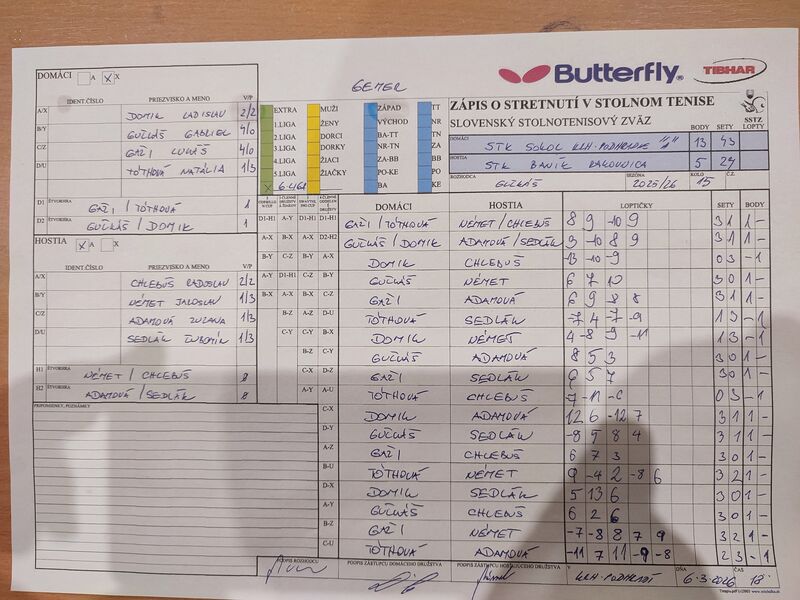 GEMER
Butterfly
TIBHAR
ZÁPIS O STRETNUTÍ V STOLNOM TENISE
SLOVENSKÝ STOLNOTENISOVÝ ZVÄZ
BODY SETY SSTZ LOPTY
DOMÁCI STK SOKOL KRH-PODHRADIE "A" 13 43
HOSTIA STK BANÍK RAKOVNICA 5 24
ROZHODCA GULKÁŠ SEZÓNA 2025/26 KOLO 15 Č.Z.
DOMÁCI A X
IDENT.ČÍSLO PRIEZVISKO A MENO V/P
A/X DOMIK LADISLAV 2/2
B/Y GULKÁŠ GABRIEL 4/0
C/Z GAŽI LUKÁŠ 4/0
D/U TÓTHOVÁ NATÁLIA 1/3
D1 ŠTVORHRA GAŽI / TÓTHOVÁ 1
D2 ŠTVORHRA GULKÁŠ / DOMIK 1
HOSTIA X A X
IDENT.ČÍSLO PRIEZVISKO A MENO V/P
A/X CHLEBUŠ RADOSLAV 2/2
B/Y NÉMET JAROSLAV 1/3
C/Z ADAMOVÁ ZUZANA 1/3
D/U SEDLÁK ĽUBOMÍR 1/3
H1 ŠTVORHRA NÉMET / CHLEBUŠ 0
H2 ŠTVORHRA ADAMOVÁ / SEDLÁK 0
PRIPOMIENKY, POZNÁMKY
EXTRA MUŽI ZÁPAD TT
1.LIGA ŽENY VÝCHOD NR
2.LIGA DORCI BA-TT TN
3.LIGA DORKY NR-TN ZA
4.LIGA ŽIACI ZA-BB BB
5.LIGA ŽIAČKY PO-KE PO
X 6.LIGA BA KE
DOMÁCI HOSTIA LOPTIČKY SETY BODY
GAŽI / TÓTHOVÁ NÉMET / CHLEBUŠ 8 9 -10 9 3 1 1 -
GULKÁŠ / DOMIK ADAMOVÁ / SEDLÁK 9 -10 8 9 3 1 1 -
DOMIK CHLEBUŠ -13 -10 -9 0 3 - 1
GULKÁŠ NÉMET 6 7 10 3 0 1 -
GAŽI ADAMOVÁ 6 9 -8 8 3 1 1 -
TÓTHOVÁ SEDLÁK -7 4 -7 -9 1 3 - 1
DOMIK NÉMET 4 -8 -9 -11 1 3 - 1
GULKÁŠ ADAMOVÁ 8 5 3 3 0 1 -
GAŽI SEDLÁK 5 7 3 0 1 -
TÓTHOVÁ CHLEBUŠ -7 -11 -6 0 3 - 1
DOMIK ADAMOVÁ 12 6 -12 7 3 1 1 -
GULKÁŠ SEDLÁK -8 9 8 4 3 1 1 -
GAŽI CHLEBUŠ 6 7 3 3 0 1 -
TÓTHOVÁ NÉMET 9 -4 2 -8 6 3 2 1 -
DOMIK SEDLÁK 5 13 6 3 0 1 -
GULKÁŠ CHLEBUŠ 6 2 6 3 0 1 -
GAŽI NÉMET -7 -8 8 7 9 3 2 1 -
TÓTHOVÁ ADAMOVÁ -11 7 11 -9 -8 2 3 - 1
PODPIS ROZHODCU
PODPIS ZÁSTUPCU DOMÁCEHO DRUŽSTVA
PODPIS ZÁSTUPCU HOSŤUJÚCEHO DRUŽSTVA
V KRH-PODHRADÍ DŇA 6.3.2026 ČAS